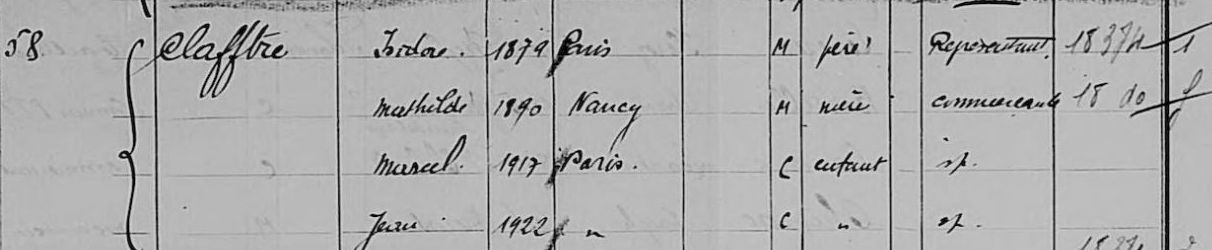 58. Clafftre Isidore. 1879 Paris M père Représentant 18374 1
Mathilde 1890 Nancy M mère commerçante 18 do
Marcel. 1917 Paris. C enfant sp.
Jean 1922 " C " sp.